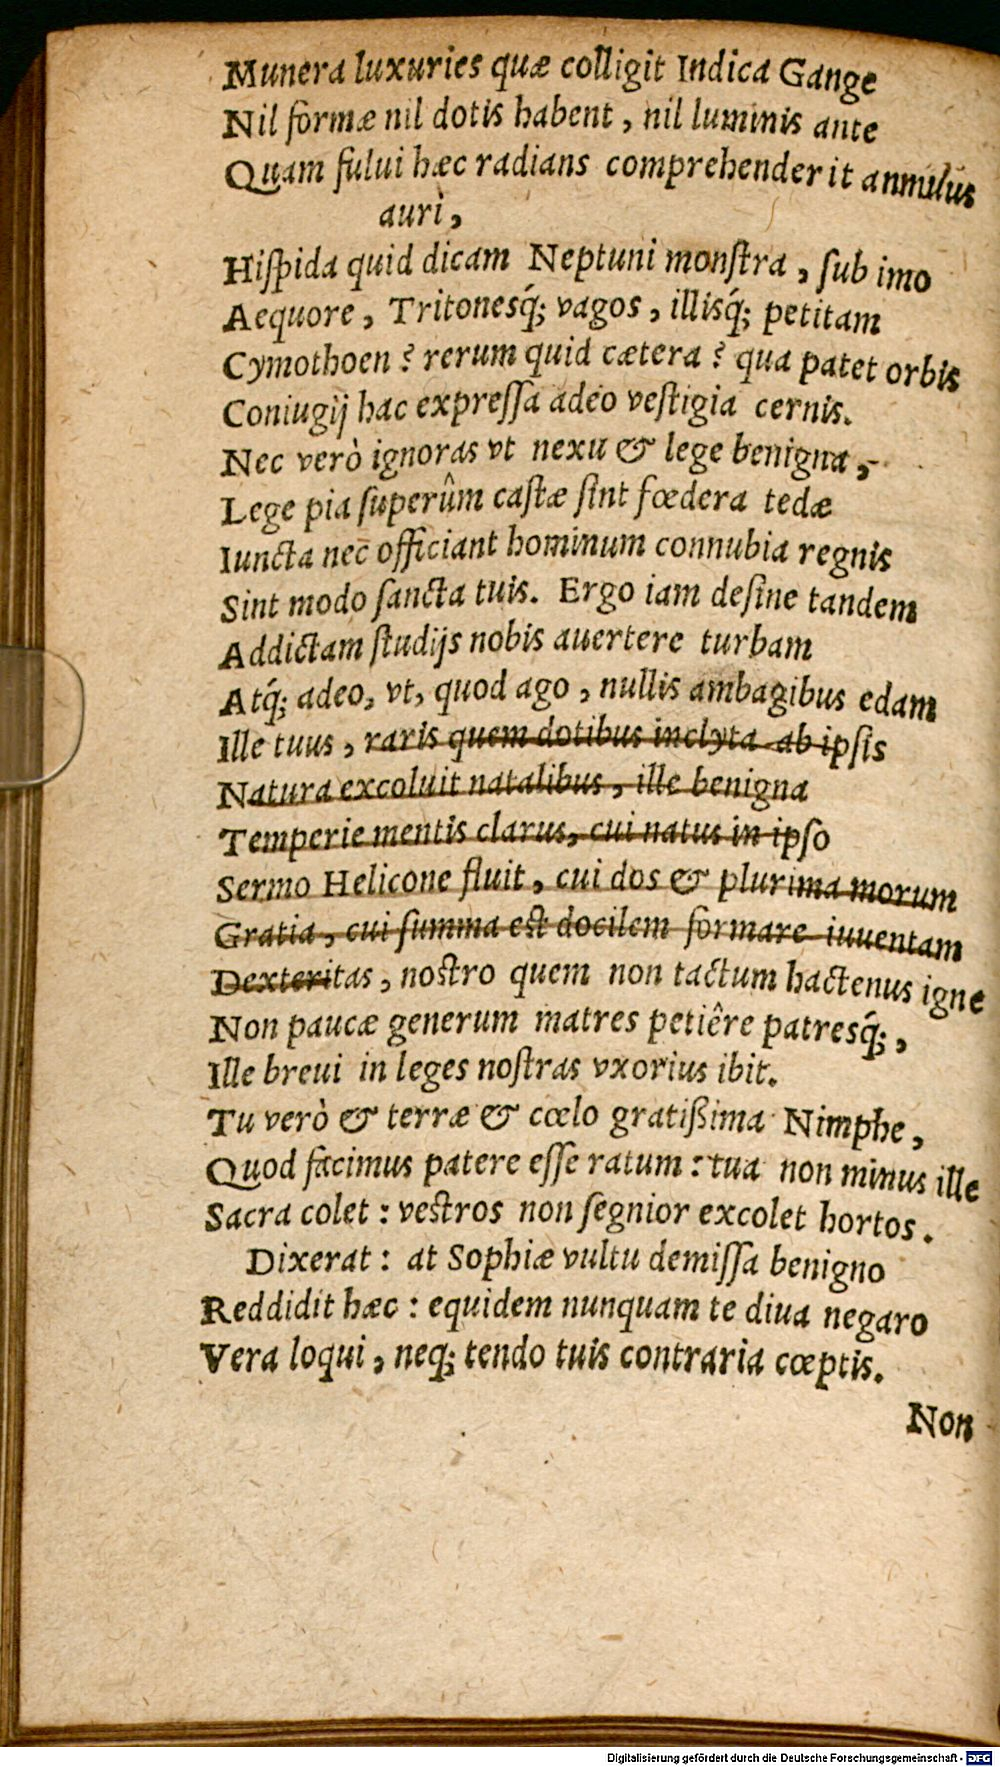 Munera luxuries quæ colligit Indica Gange
Nil formæ nil dotis habent, nil luminis ante
Quam fului hæc radians comprehenderit annulus
auri,
Hiſpida quid dicam Neptuni monſtra, ſub imo
Aequore, Tritonesq́; vagos, illisq́; petitam
Cymothoen? rerum quid cætera? qua patet orbis
Coniugij hac expreſſa adeo veſtigia cernis.
Nec verò ignoras vt nexu & lege benigna,
Lege pia ſuperûm caſtæ ſint fœdera tedæ
Iuncta nec officiant hominum connubia regnis
Sint modo ſancta tuis. Ergo iam deſine tandem
Addictam ſtudijs nobis auertere turbam
Atq́; adeo, vt, quod ago, nullis ambagibus edam
Ille tuus, raris quem dotibus inclyta ab ipſis
Natura excoluit natalibus, ille benigna
Temperie mentis clarus, cui natus in ipſo
Sermo Helicone fluit, cui dos & plurima morum
Gratia, cui ſumma est docilem formare iuuentam
Dexteritas, nostro quem non tactum hactenus igne
Non paucæ generum matres petiêre patresq́;,
Ille breui in leges noſtras vxorius ibit.
Tu verò & terræ & cœlo gratißima Nimphe,
Quod facimus patere eſſe ratum: tua non minus ille
Sacra colet: vestros non ſegnior excolet hortos.
Dixerat: at Sophiæ vultu demiſſa benigno
Reddidit hæc: equidem nunquam te diua negaro
Vera loqui, neq; tendo tuis contraria cœptis.
Non
Digitalisierung gefördert durch die Deutsche Forschungsgemeinschaft - DFG